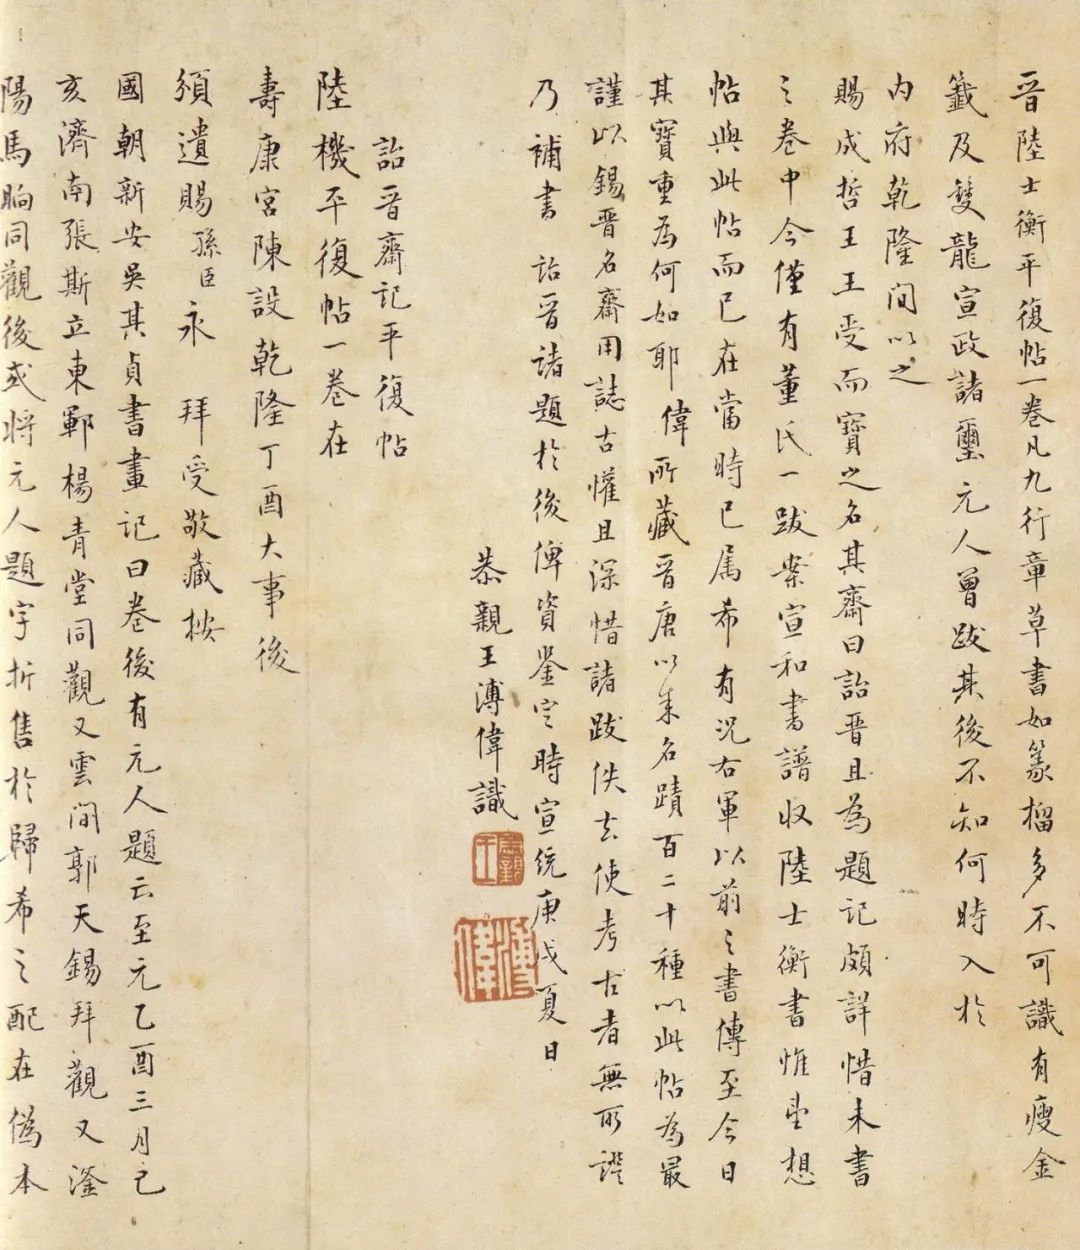 晉陸士衡平復帖一卷凡九行章草書如篆榴多不可識有瘦金
籤及雙龍宣政諸璽元人曾跋其後不知何時入於
內府乾隆间以之
賜成哲王王受而寶之名其齋曰詒晉且為題記頗詳惜未書
之卷中今僅有董氏一跋案宣和書譜收陸士衡書惟想
帖與此帖而已在當時已属希有况右軍以前之書傳至今日
其寶重為何如耶偉所藏晉唐以來名蹟百二十種以此帖為最
謹以錫晉名齋用誌古懽且深惜諸跋佚去使考古者無所證
乃補書詒晉諸題於後俾資鉴定時宣统庚戌夏日
恭親王溥偉識
恭親王
溥偉
詒晉齋記平復帖
陸機平復帖一卷在
壽康宮陳設乾隆丁酉大事後
頒遺賜孫臣永拜受敬藏按
國朝新安吳其貞書畫記曰卷後有元人題云至元乙酉三月己
亥濟南張斯立東鄆楊青堂同觀又雲間郭天錫拜觀又滏
陽馬昫同觀後或将元人題字折售於歸希之配在偽本